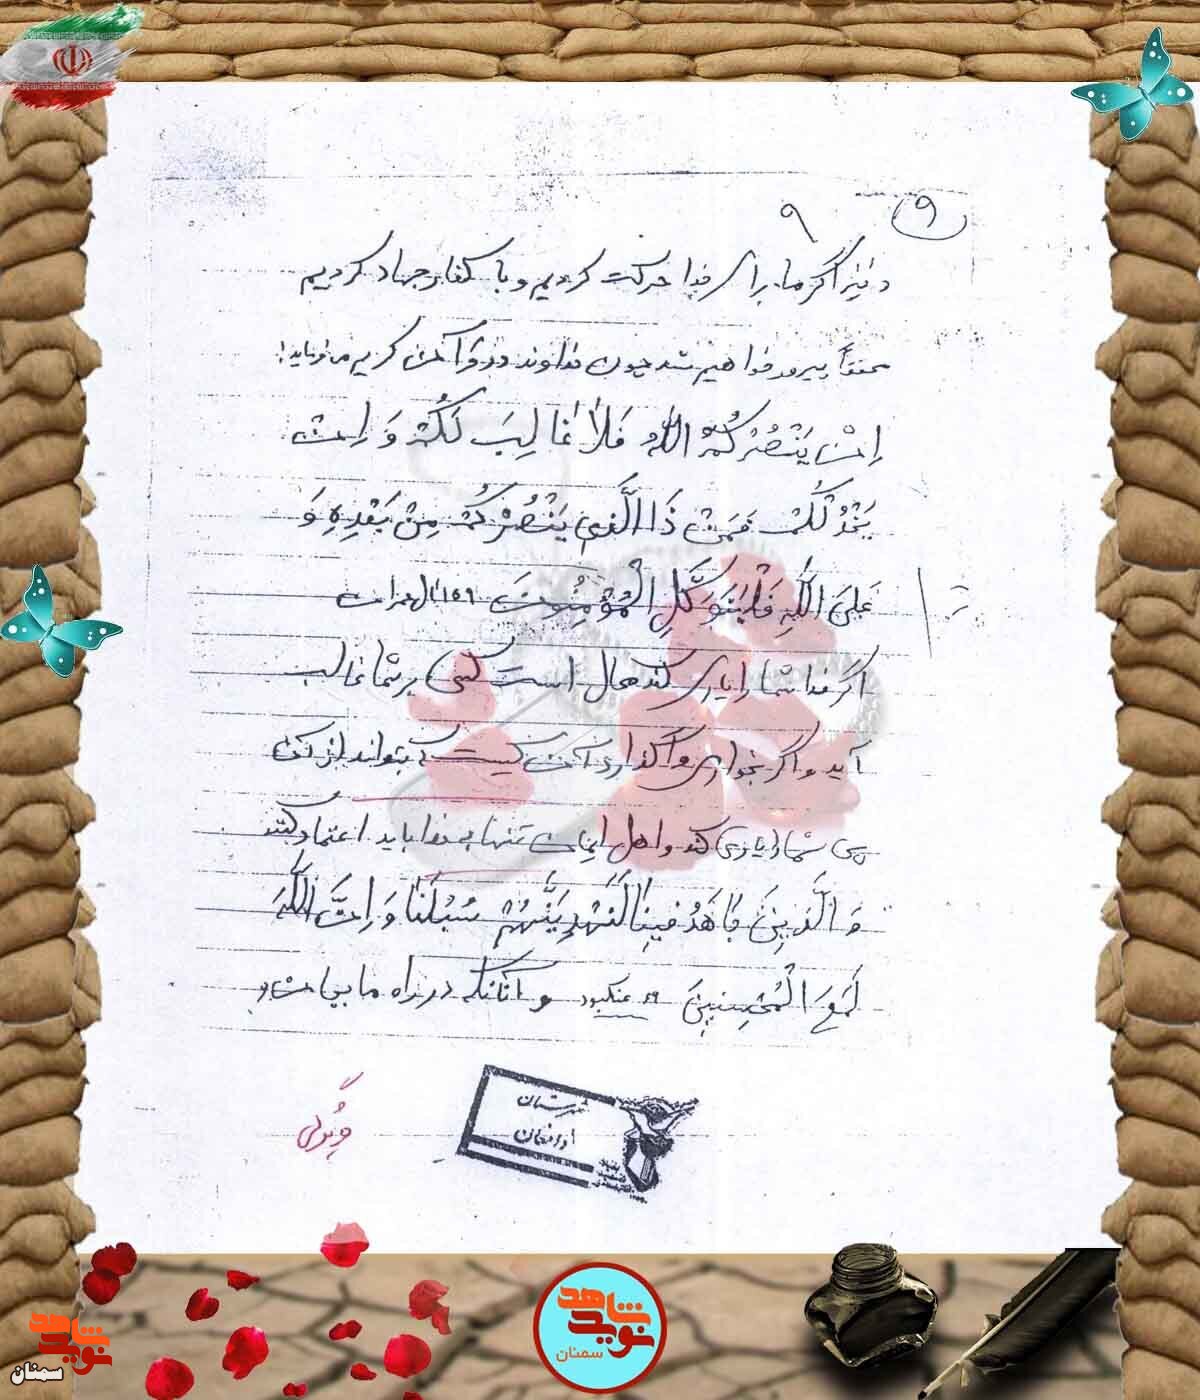 ۹ ۹
و نیز اگر ما برای خدا حرکت کردیم و با کفار جهاد کردیم
محققاً پیروز خواهیم شد چون خداوند در قرآن کریم میفرماید:
اِنْ یَنْصُرْکُمُ اللّٰهُ فَلاٰ غٰالِبَ لَکُمْ وَ اِنْ
یَخْذُلْکُمْ فَمَنْ ذَا الَّذی یَنْصُرْکُمْ مِنْ بَعْدِهِ وَ
عَلَی اللّٰهِ فَلْیَتَوَکَّلِ الْمُؤْمِنُونَ ۱۵۹ آل عمران
اگر خدا شما را یاری کند محال است کسی بر شما غالب
آید و اگر بخواری واگذارد آن کیست که بتواند از آن
پس شما را یاری کند و اهل ایمان تنها به خدا باید اعتماد کنند
وَ الَّذینَ جٰاهَدُ فینٰا لَنَهْدِیَنَّهُمْ سُبُلَنٰا وَ اِنَّ اللّٰهَ
لَمَعَ الْمُحْسِنینَ ۶۹ عنکبود و آنانکه در راه ما بجان و
شهرستان
دامغان
نوید شاهد
سمنان
نوید شاهد
سمنان